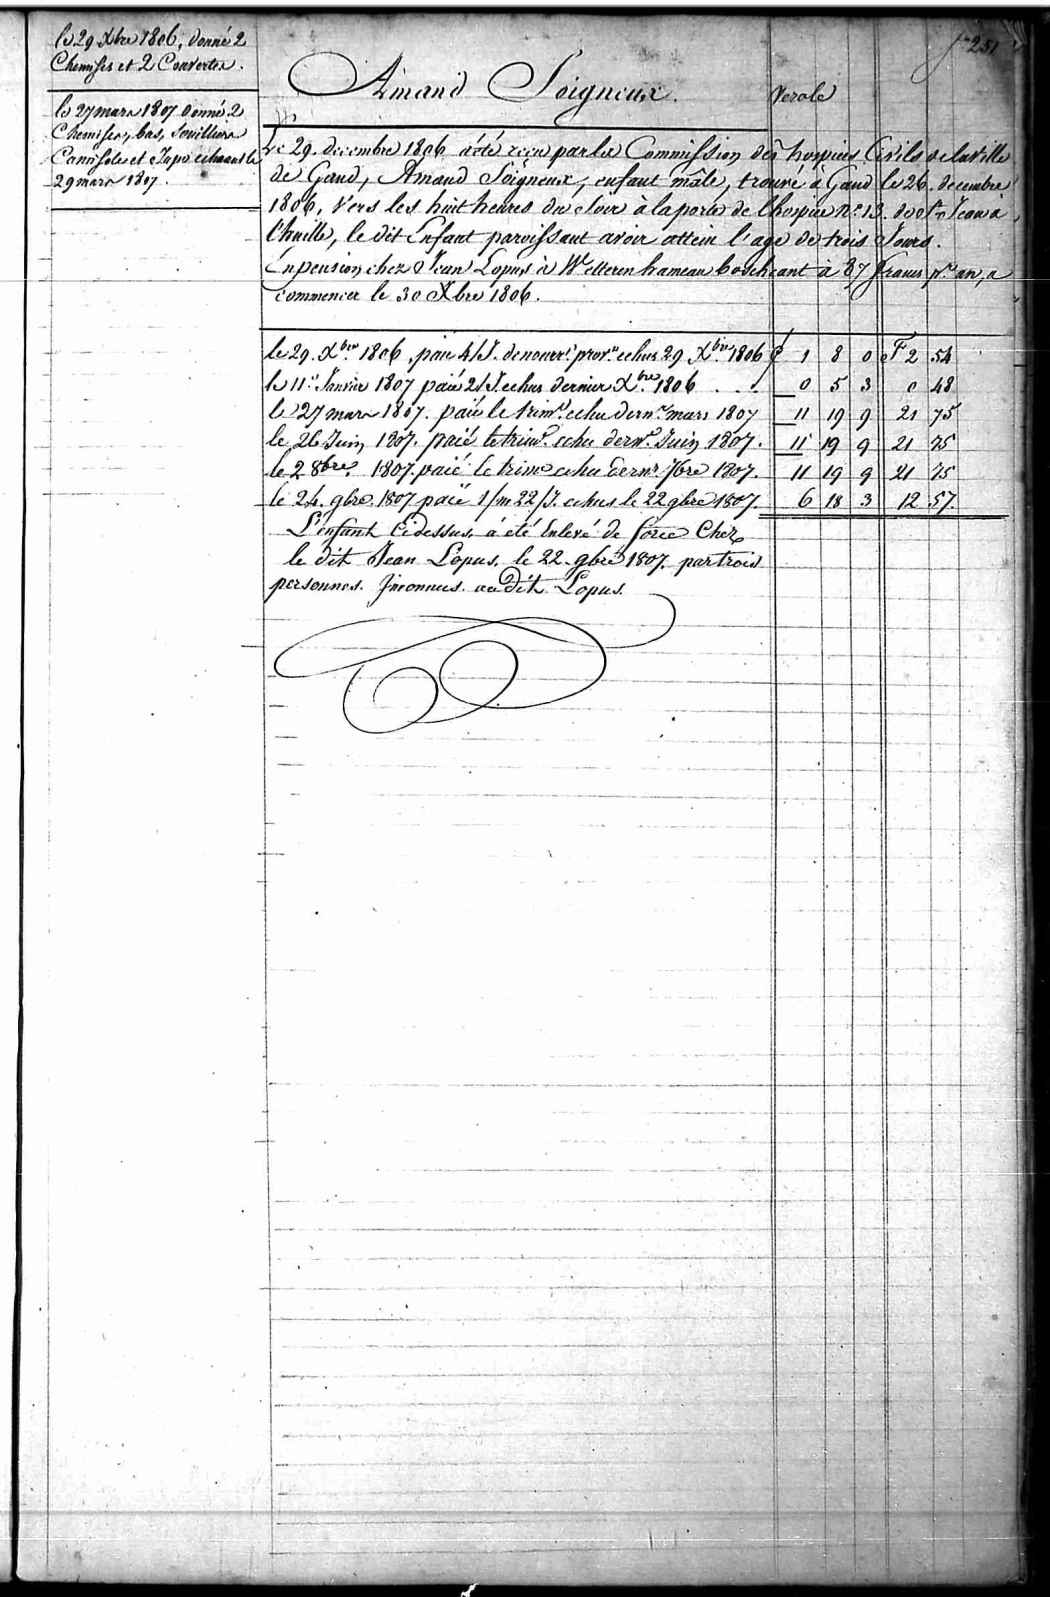 le 29 Xbre 1806, donné 2
Chemises et 2 Couvertes.
le 27 mars 1807 donné 2
Chemises, bas, Souilliers
Camisoles et Jupe echeant le
29 mars 1807.
f° 251
Amand Soigneux.
Verole
Le 29. decembre 1806 a été recu par la Commission des hospices Civils de la ville
de Gand, Amand Soigneux, enfant mâle, trouvé à Gand le 26. decembre
1806, Vers les huit heures du Soir à la porte de l'hospice N° 13. de St Jean à
l'huille, le dit Enfant paroissant avoir attein l'age de trois Jours.
En pension chez Jean Lopus à Wetteren hameau boschcant à 87 francs pr an, a
commencer le 30 Xbre 1806.
le 29. Xbre 1806, paié 4/J. de nourre prove echus 29 Xbre 1806 £ 1 8 0 F 2 54
le 11e Janvier 1807 paié 2/J. echus dernier Xbre 1806 . . . 0 5 3 0 48
le 27 mars 1807. paié le trime echu dernr mars 1807 11 19 9 21 75
le 26 Juin 1807. paié le trime echu dernr Juin 1807. 11 19 9 21 75
le 2 8bre 1807. paié le trime echu dernr 7bre 1807. 11 19 9 21 75
le 24. gbre 1807 paié 1/m 22/J. echus le 22 gbre 1807. 6 18 3 12 57.
L'enfant Cidessus, a été Enlevé de force Chez
le dit Jean Lopus, le 22. gbre 1807. par trois
personnes. Jnconnues. au dit Lopus.